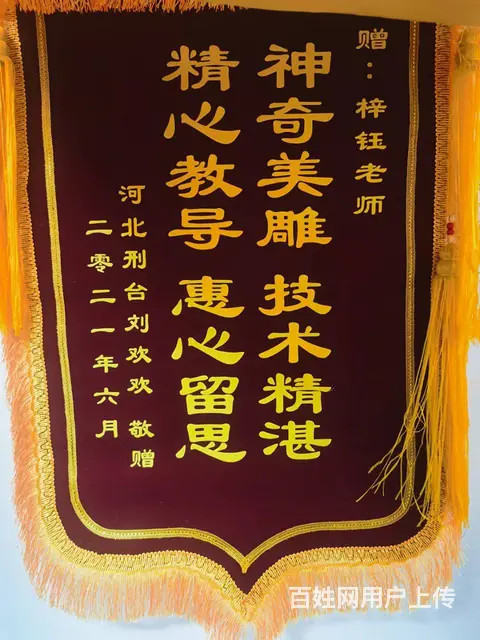 赠：梓钰老师
神奇美雕 技术精湛
精心教导 惠心留思
河北刑台刘欢欢 敬赠
二零二一年六月
百姓网用户上传